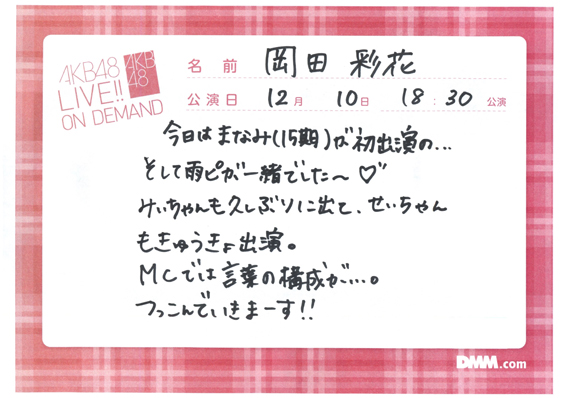 AKB48
LIVE!!
ON DEMAND
AKB
48
名前 岡田 彩花
公演日 12月 10日 18:30 公演
今日はまなみ(15期)が初出演の...
そして雨ピが一緒でした〜♡
みぃちゃんも久しぶりに出て、せいちゃん
もきゅうきょ出演。
MCでは言葉の構成が...。
つっこんでいきまーす!!
DMM.com